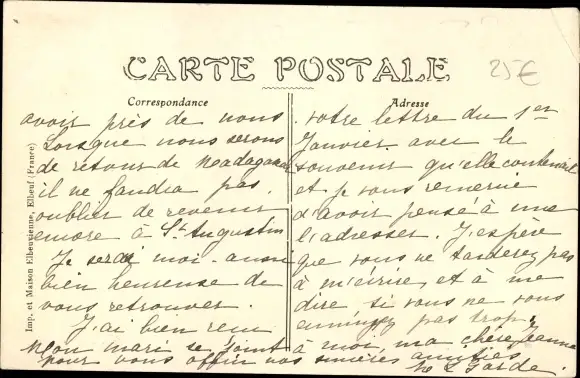 CARTE POSTALE
25€
Correspondance
avoir près de nous
Lorsque nous serons
de retour de Madagascar
il ne faudra pas
oublier de revenir
encore à St Augustin
Je serai moi aussi
bien heureuse de
vous retrouver.
J'ai bien reçu
Adresse
votre lettre du 1er
Janvier avec le
souvenir qu'elle contenait
et je vous remercie
d'avoir pensé à me
l'adresser. J'espère
que vous ne tarderez pas
à m'écrire, et à me
dire si vous ne vous
ennuyez pas trop.
Mon mari se joint à moi, ma chère Jeanne
pour vous offrir nos sincères amitiés
Lafarde.
Imp. et Maison Elbeuvienne, Elbeuf (France)